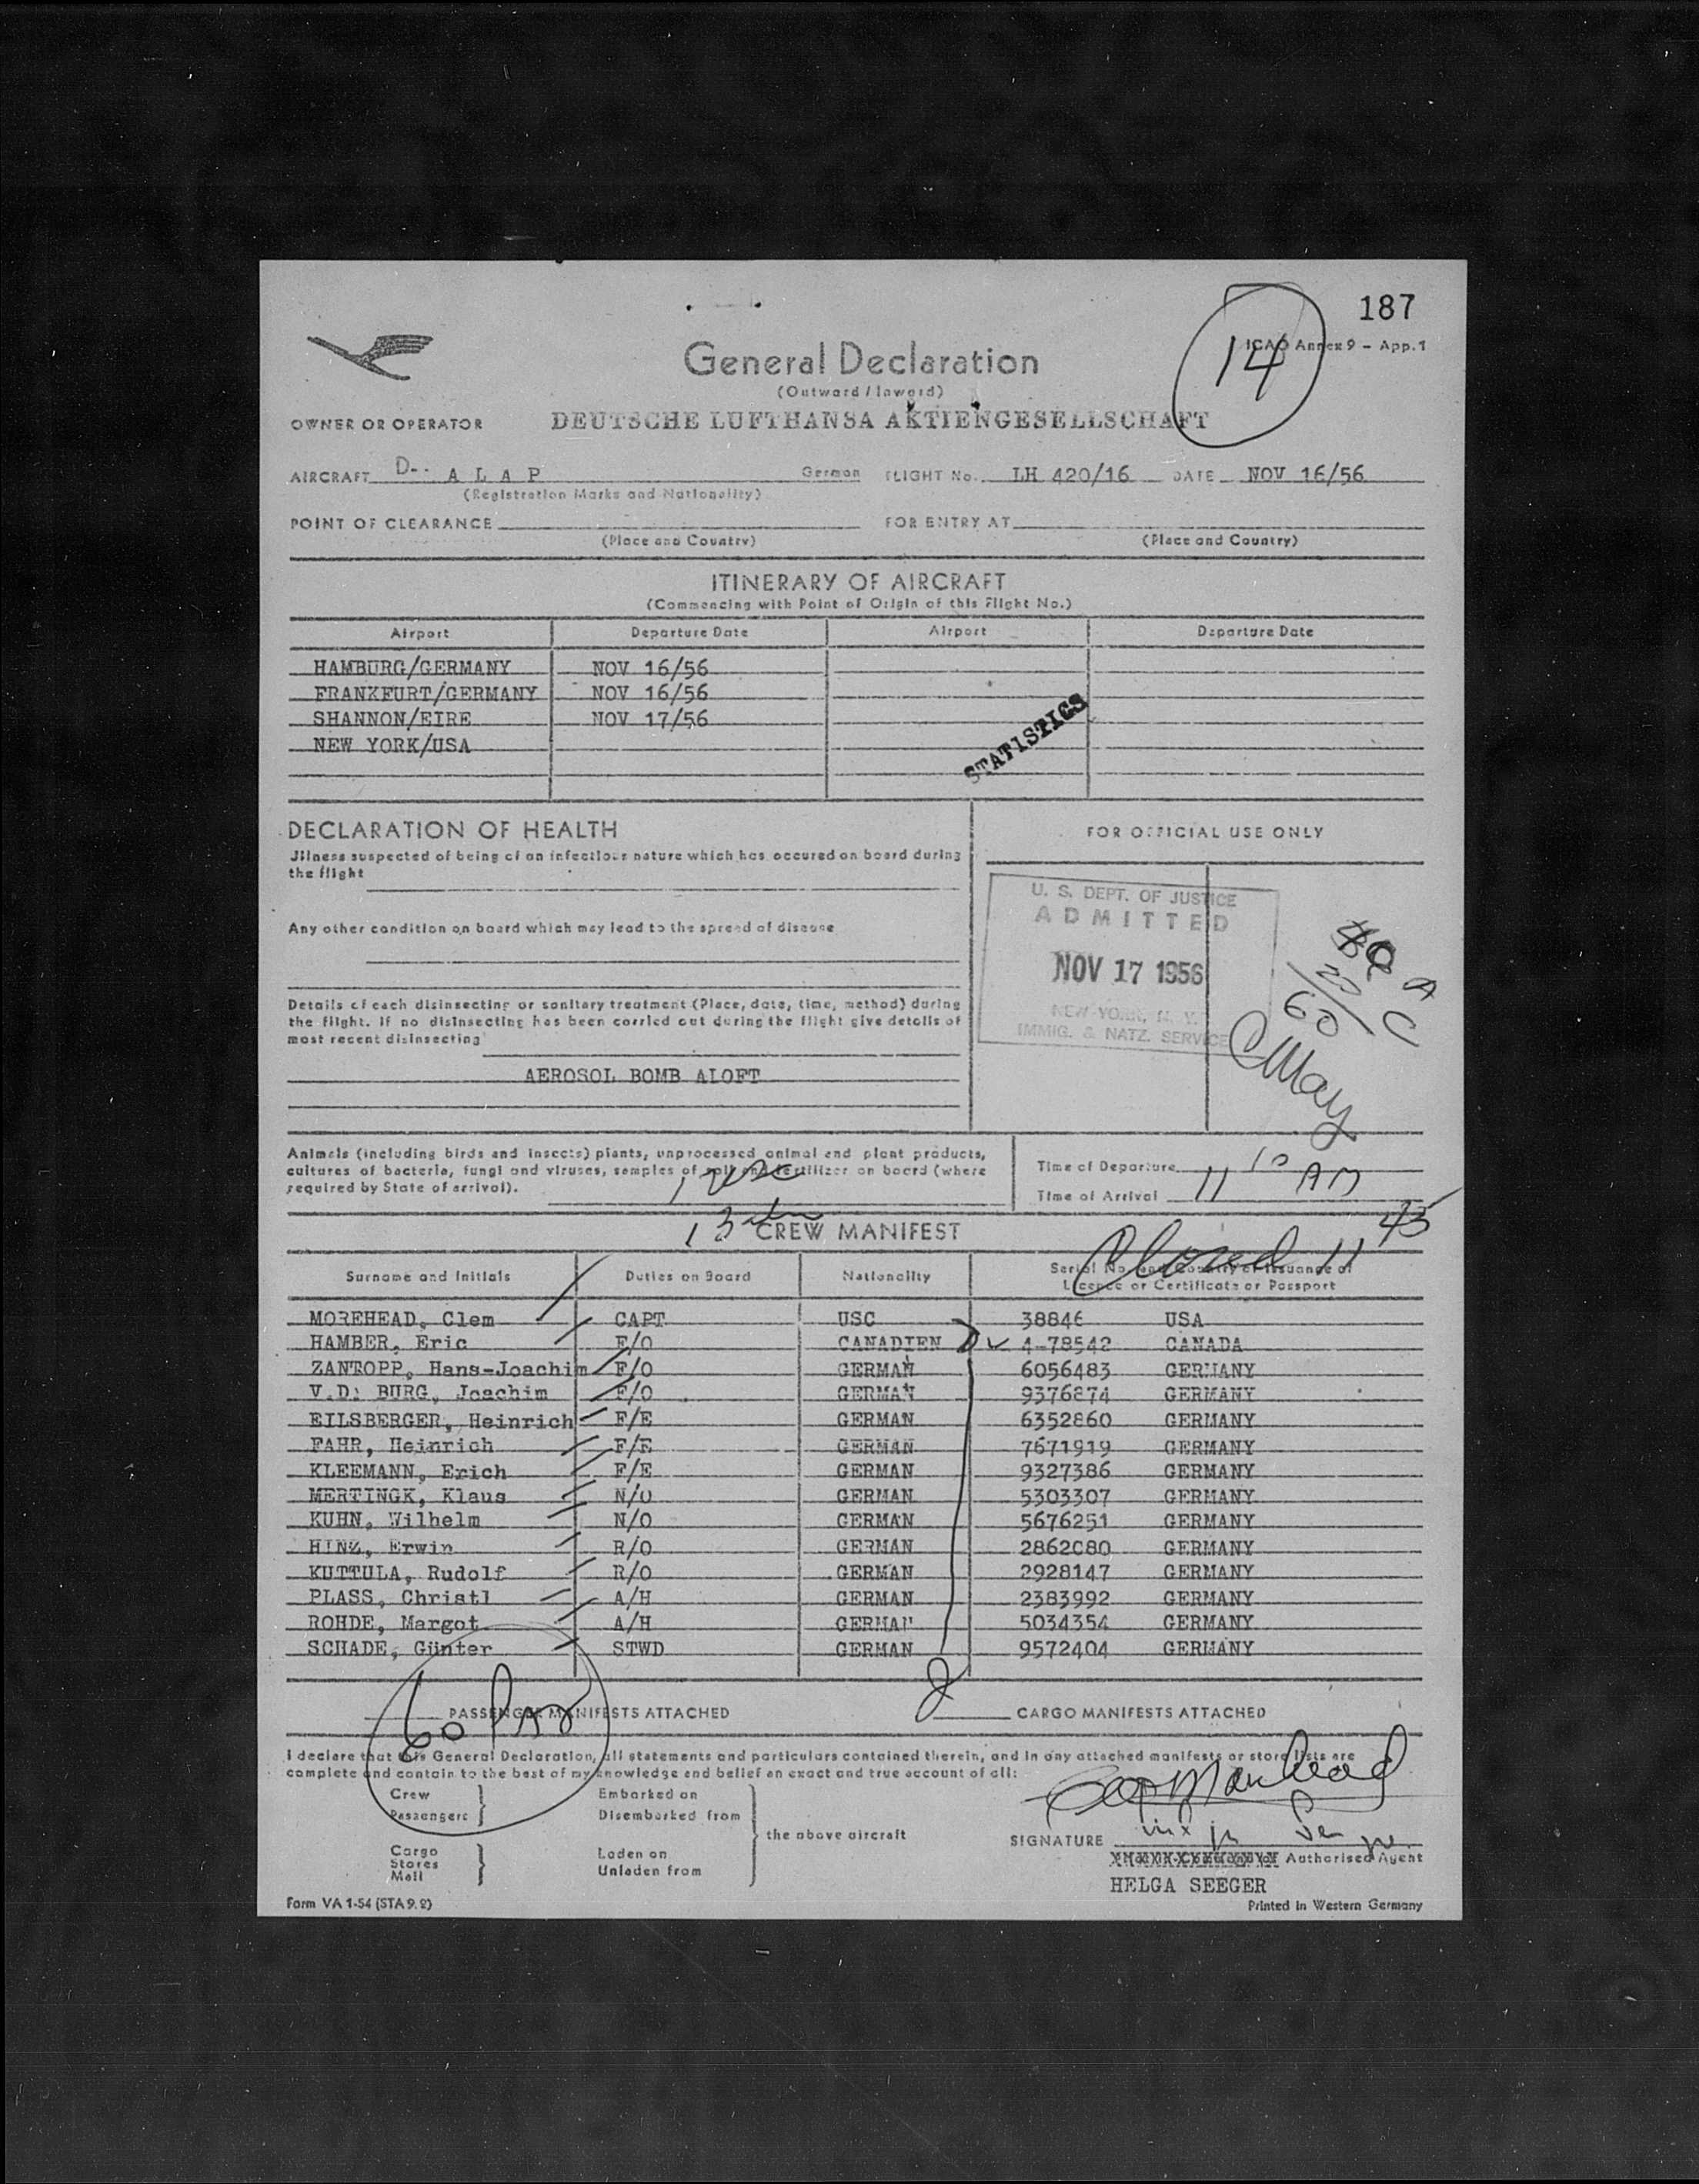 187
14
ICAO Annex 9 – App. 1
General Declaration
(Outward / Inward)
OWNER OR OPERATOR DEUTSCHE LUFTHANSA AKTIENGESELLSCHAFT
AIRCRAFT D-- A L A P German FLIGHT No. LH 420/16 DATE NOV 16/56
(Registration Marks and Nationality)
POINT OF CLEARANCE FOR ENTRY AT
(Place and Country) (Place and Country)
ITINERARY OF AIRCRAFT
(Commencing with Point of Origin of this Flight No.)
Airport Departure Date Airport Departure Date
HAMBURG/GERMANY NOV 16/56
FRANKFURT/GERMANY NOV 16/56
SHANNON/EIRE NOV 17/56
NEW YORK/USA
STATISTICS
DECLARATION OF HEALTH
Jilness suspected of being of an infectious nature which has occured on board during
the flight
Any other condition on board which may lead to the spread of disease
Details of each disinsecting or sanitary treatment (Place, date, time, method) during
the flight. If no disinsecting has been carried out during the flight give details of
most recent disinsecting
AEROSOL BOMB ALOFT
FOR OFFICIAL USE ONLY
U. S. DEPT. OF JUSTICE
ADMITTED
NOV 17 1956
NEW YORK, N. Y.
IMMIG. & NATZ. SERVICE
60
CMay
Animals (including birds and insects) plants, unprocessed animal and plant products,
cultures of bacteria, fungi and viruses, samples of soil and fertilizer on board (where
required by State of arrival).
1 USC
13
Time of Departure
Time of Arrival 11 10 AM
CREW MANIFEST
Closed 11 45
Surname and Initials Duties on Board Nationality Serial No. and Country of Issuance of
Licence or Certificate or Passport
MOREHEAD, Clem CAPT USC 38846 USA
HAMBER, Eric F/O CANADIEN 4-78542 CANADA
ZANTOPP, Hans-Joachim F/O GERMAN 6056483 GERMANY
V.D. BURG, Joachim F/O GERMAN 9376874 GERMANY
EILSBERGER, Heinrich F/E GERMAN 6352860 GERMANY
FAHR, Heinrich F/E GERMAN 7671919 GERMANY
KLEEMANN, Erich F/E GERMAN 9327386 GERMANY
MERTINGK, Klaus N/O GERMAN 5303307 GERMANY
KUHN, Wilhelm N/O GERMAN 5676251 GERMANY
HINZ, Erwin R/O GERMAN 2862080 GERMANY
KUTTULA, Rudolf R/O GERMAN 2928147 GERMANY
PLASS, Christl A/H GERMAN 2383992 GERMANY
ROHDE, Margot A/H GERMAN 5034354 GERMANY
SCHADE, Günter STWD GERMAN 9572404 GERMANY
60 Pax
PASSENGER MANIFESTS ATTACHED 2 CARGO MANIFESTS ATTACHED
I declare that this General Declaration, all statements and particulars contained therein, and in any attached manifests or store lists are
complete and contain to the best of my knowledge and belief an exact and true account of all:
Crew Embarked on
Passengers Disembarked from
the above aircraft
Cargo Loden on
Stores Unladen from
Mail
SIGNATURE
Authorised Agent
HELGA SEEGER
Form VA 1-54 (STA 9.2) Printed in Western Germany